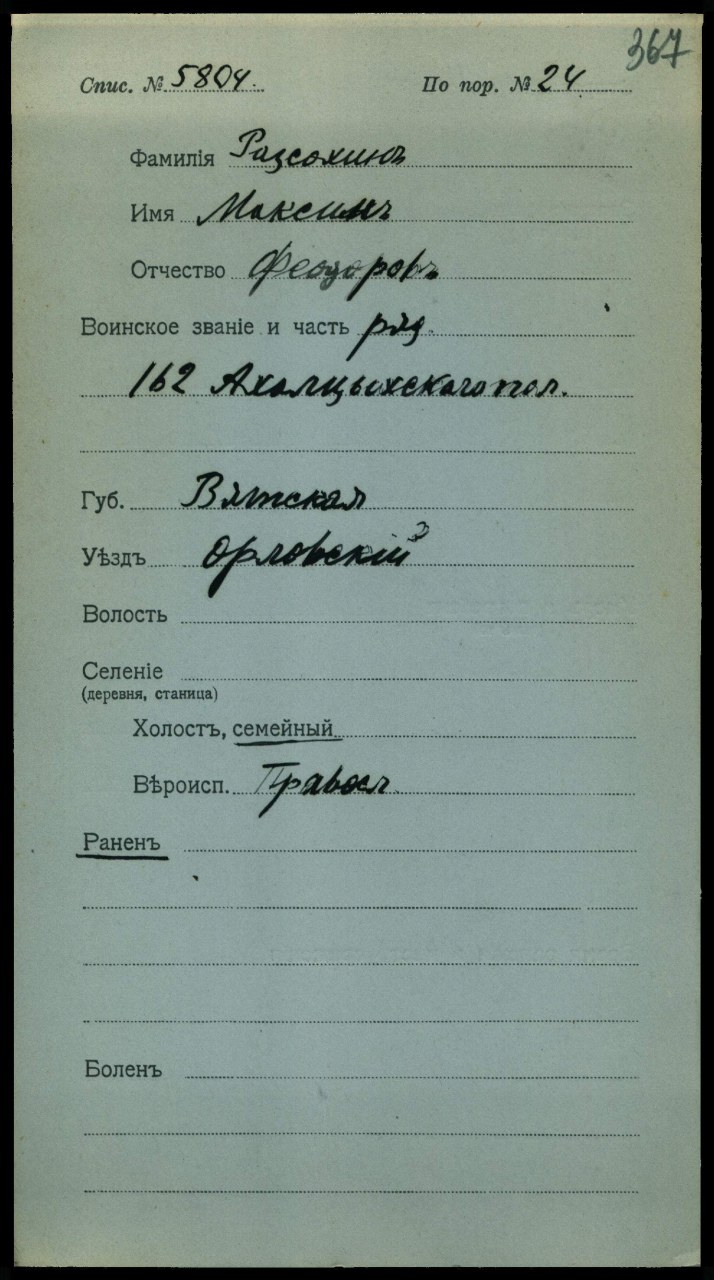 367
Спис. № 5804. По пор. № 24
Фамилія Разсохинъ
Имя Максимъ
Отчество Феодоровъ
Воинское званіе и часть ряд.
162 Ахалцыхскаго пол.
Губ. Вятская
Уѣздъ Орловскій
Волость
Селеніе
(деревня, станица)
Холостъ, семейный
Вѣроисп. Правосл.
Раненъ
Боленъ